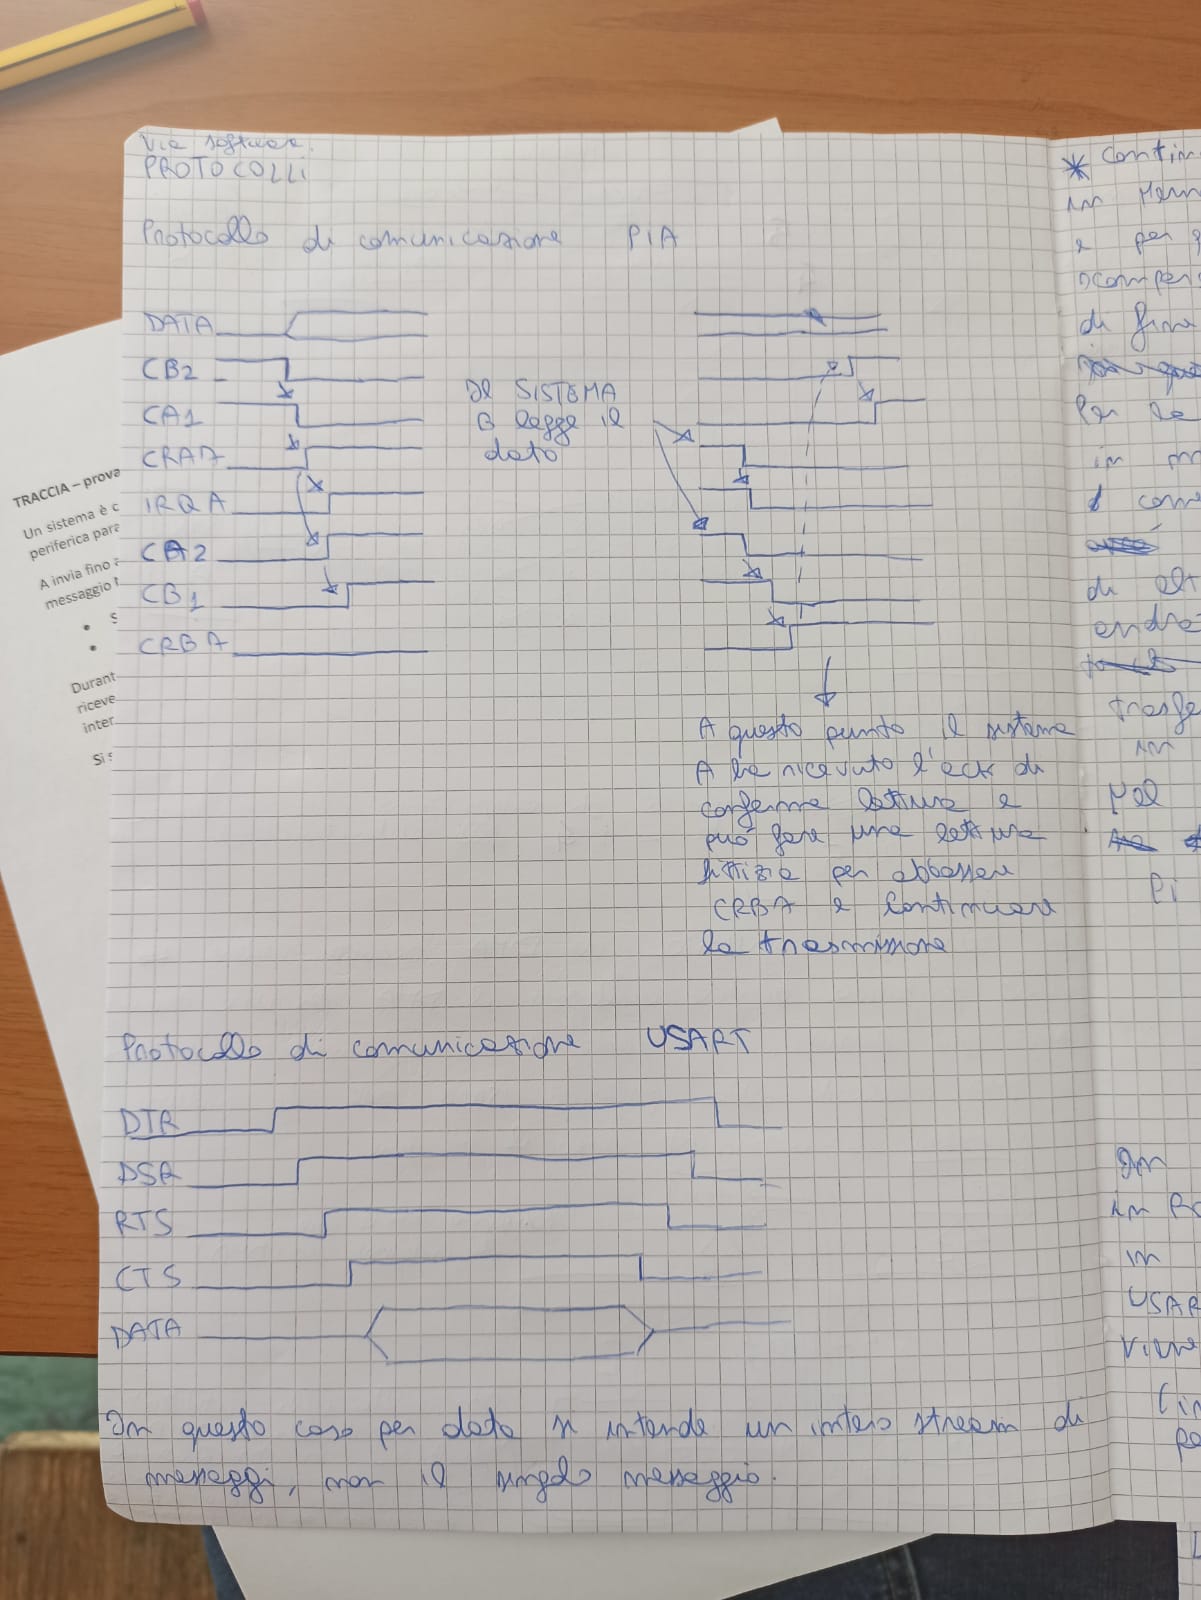 Via software.
PROTOCOLLI
Protocollo di comunicazione PIA
DATA
CB2
CA1
CRA7
IRQA
CA2
CB1
CRB7
Il SISTEMA
B legge il
dato
A questo punto il sistema
A ha ricevuto l'ack di
conferma lettura e
può fare una lettura
fittizia per abbassare
CRB7 e continuare
la trasmissione
Protocollo di comunicazione USART
DTR
DSR
RTS
CTS
DATA
In questo caso per dato si intende un intero stream di
messaggi, non il singolo messaggio.
TRACCIA – prova
Un sistema è c
periferica para
A invia fino a
messaggio
Durant
riceve
inter
Si s
* Contin
in
e per
scomper
di fine
Per la
in
di
trasfe
in
Nel
in
in
USAR
viene